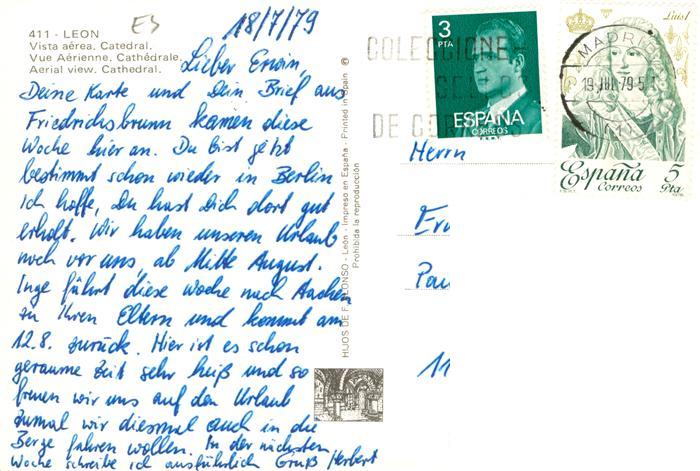 18/7/79
411 - LEON
Vista aérea. Catedral.
Vue Aérienne. Cathédrale.
Aerial view. Cathedral.
Lieber Erwin,
Deine Karte und Dein Brief aus
Friedrichsbrunn kamen diese
Woche hier an. Du bist jetzt
bestimmt schon wieder in Berlin
ich hoffe, Du hast Dich dort gut
erholt. Wir haben unseren Urlaub
noch vor uns, ab Mitte August.
Inge fährt diese Woche nach Aachen
zu Ihren Eltern und kommt am
12.8. zurück. Hier ist es schon
geraume Zeit sehr heiß und so
freuen wir uns auf den Urlaub
zumal wir diesmal auch in die
Berge fahren wollen. In der nächsten
Woche schreibe ich ausführlich Gruß Herbert
HIJOS DE F. ALONSO - León - Impreso en España - Printed in Spain ©
Prohibida la reproducción
COLECCIONE
DE
3
PTA
ESPAÑA
CORREOS
F.N.M.T.
MADRID
19 JUL 79
Luis I
España 5
Correos Pta
Herrn
Er
Pau
11